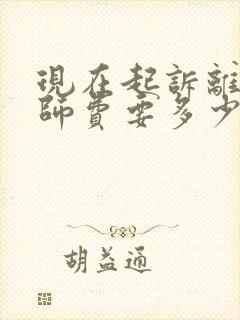 現在起訴離
師費要多少
胡益通